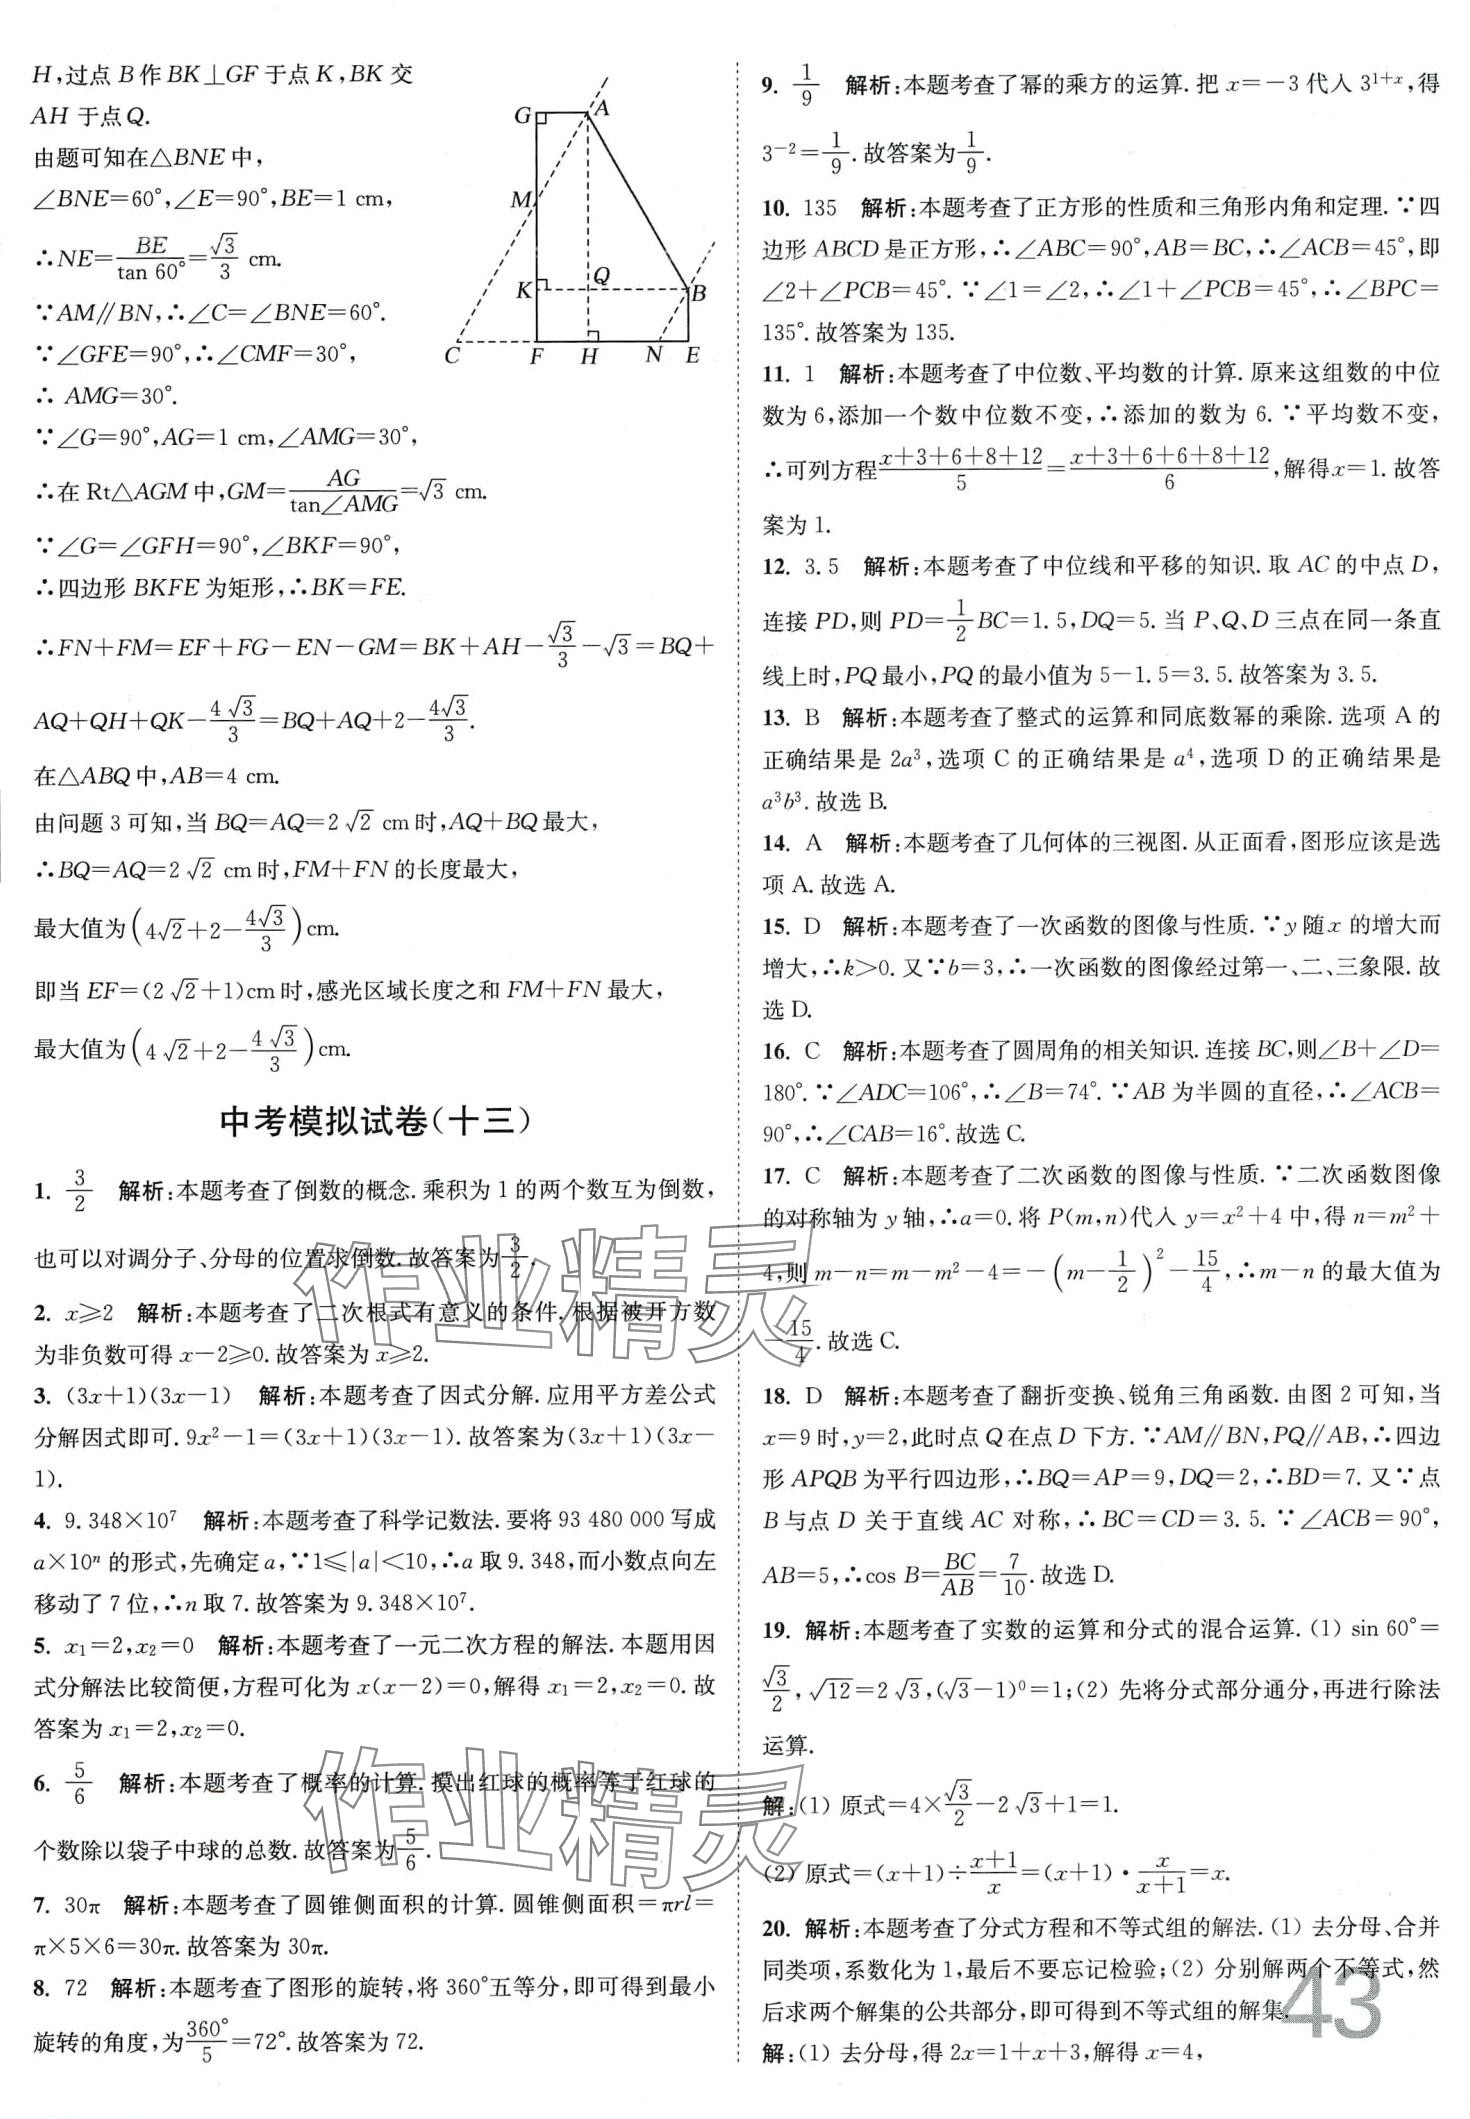 H,过点B作BK⊥GF于点K,BK交
AH于点Q.
由题可知在△BNE中,
∠BNE=60°,∠E=90°,BE=1 cm,
∴NE=BE/tan 60°=√3/3 cm.
∵AM∥BN,∴∠C=∠BNE=60°.
∵∠GFE=90°,∴∠CMF=30°,
∴ AMG=30°.
∵∠G=90°,AG=1 cm,∠AMG=30°,
∴在Rt△AGM中,GM=AG/tan∠AMG=√3 cm.
∵∠G=∠GFH=90°,∠BKF=90°,
∴四边形BKFE为矩形,∴BK=FE.
∴FN+FM=EF+FG-EN-GM=BK+AH-√3/3-√3=BQ+
AQ+QH+QK-4√3/3=BQ+AQ+2-4√3/3.
在△ABQ中,AB=4 cm.
由问题3可知,当BQ=AQ=2√2 cm时,AQ+BQ最大,
∴BQ=AQ=2√2 cm时,FM+FN的长度最大,
最大值为(4√2+2-4√3/3)cm.
即当EF=(2√2+1)cm时,感光区域长度之和FM+FN最大,
最大值为(4√2+2-4√3/3)cm.
G
A
M
K
Q
B
C
F
H
N
E
中考模拟试卷(十三)
1. 3/2 解析:本题考查了倒数的概念.乘积为1的两个数互为倒数,
也可以对调分子、分母的位置求倒数.故答案为3/2.
2. x≥2 解析:本题考查了二次根式有意义的条件.根据被开方数
为非负数可得x-2≥0.故答案为x≥2.
3. (3x+1)(3x-1) 解析:本题考查了因式分解.应用平方差公式
分解因式即可.9x²-1=(3x+1)(3x-1).故答案为(3x+1)(3x-
1).
4. 9.348×10⁷ 解析:本题考查了科学记数法.要将93 480 000写成
a×10ⁿ的形式,先确定a,∵1≤|a|<10,∴a取9.348,而小数点向左
移动了7位,∴n取7.故答案为9.348×10⁷.
5. x₁=2,x₂=0 解析:本题考查了一元二次方程的解法.本题用因
式分解法比较简便,方程可化为x(x-2)=0,解得x₁=2,x₂=0.故
答案为x₁=2,x₂=0.
6. 5/6 解析:本题考查了概率的计算.摸出红球的概率等于红球的
个数除以袋子中球的总数.故答案为5/6.
7. 30π 解析:本题考查了圆锥侧面积的计算.圆锥侧面积=πrl=
π×5×6=30π.故答案为30π.
8. 72 解析:本题考查了图形的旋转,将360°五等分,即可得到最小
旋转的角度,为360°/5=72°.故答案为72.
9. 1/9 解析:本题考查了幂的乘方的运算.把x=-3代入3¹⁺ˣ,得
3⁻²=1/9.故答案为1/9.
10. 135 解析:本题考查了正方形的性质和三角形内角和定理.∵四
边形ABCD是正方形,∴∠ABC=90°,AB=BC,∴∠ACB=45°,即
∠2+∠PCB=45°.∵∠1=∠2,∴∠1+∠PCB=45°,∴∠BPC=
135°.故答案为135.
11. 1 解析:本题考查了中位数、平均数的计算.原来这组数的中位
数为6,添加一个数中位数不变,∴添加的数为6.∵平均数不变,
∴可列方程x+3+6+8+12/5=x+3+6+6+8+12/6,解得x=1.故答
案为1.
12. 3.5 解析:本题考查了中位线和平移的知识.取AC的中点D,
连接PD,则PD=1/2BC=1.5,DQ=5.当P、Q、D三点在同一条直
线上时,PQ最小,PQ的最小值为5-1.5=3.5.故答案为3.5.
13. B 解析:本题考查了整式的运算和同底数幂的乘除.选项A的
正确结果是2a³,选项C的正确结果是a⁴,选项D的正确结果是
a³b³.故选B.
14. A 解析:本题考查了几何体的三视图.从正面看,图形应该是选
项A.故选A.
15. D 解析:本题考查了一次函数的图像与性质.∵y随x的增大而
增大,∴k>0.又∵b=3,∴一次函数的图像经过第一、二、三象限.故
选D.
16. C 解析:本题考查了圆周角的相关知识.连接BC,则∠B+∠D=
180°.∵∠ADC=106°,∴∠B=74°.∵AB为半圆的直径,∴∠ACB=
90°,∴∠CAB=16°.故选C.
17. C 解析:本题考查了二次函数的图像与性质.∵二次函数图像
的对称轴为y轴,∴a=0.将P(m,n)代入y=x²+4中,得n=m²+
4,则m-n=m-m²-4=-(m-1/2)²-15/4,∴m-n的最大值为
-15/4.故选C.
18. D 解析:本题考查了翻折变换、锐角三角函数.由图2可知,当
x=9时,y=2,此时点Q在点D下方.∵AM∥BN,PQ∥AB,∴四边
形APQB为平行四边形,∴BQ=AP=9,DQ=2,∴BD=7.又∵点
B与点D关于直线AC对称,∴BC=CD=3.5.∵∠ACB=90°,
AB=5,∴cos B=BC/AB=7/10.故选D.
19. 解析:本题考查了实数的运算和分式的混合运算.(1) sin 60°=
√3/2,√12=2√3,(√3-1)⁰=1;(2) 先将分式部分通分,再进行除法
运算.
解:(1) 原式=4×√3/2-2√3+1=1.
(2) 原式=(x+1)÷x+1/x=(x+1)·x/x+1=x.
20. 解析:本题考查了分式方程和不等式组的解法.(1) 去分母、合并
同类项,系数化为1,最后不要忘记检验;(2) 分别解两个不等式,然
后求两个解集的公共部分,即可得到不等式组的解集.
解:(1) 去分母,得2x=1+x+3,解得x=4,
43
作业精灵
作业精灵